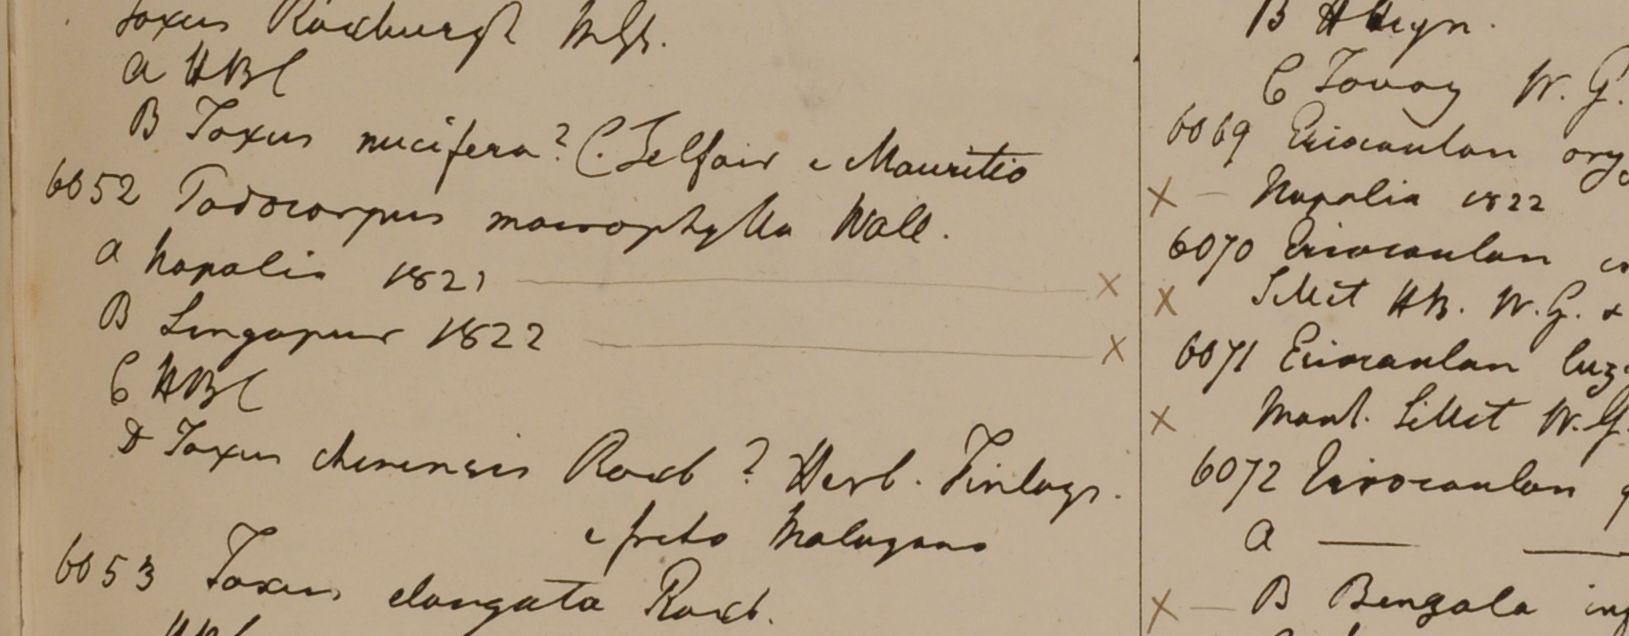 Taxus Roxburgh Mss.
a HBC
B Taxus nucifera? C. Telfair e Mauritio
6052 Podocarpus macrophylla Wall.
a Napalia 1821 x
B Singapur 1822 x
C HBC
D Taxus chinensis Roxb? Herb. Finlays.
e freto Malayano
6053 Taxus elongata Roxb.
HBC
B H Heyn.
C Tavoy W. G.
6069 Eriocaulon ory
x — Napalia 1822
6070 Eriocaulon
x Sillet HB. W. G. &
6071 Eriocaulon luz
x Mont. Sillet W. G.
6072 Eriocaulon
a — —
x — B Bengala inf